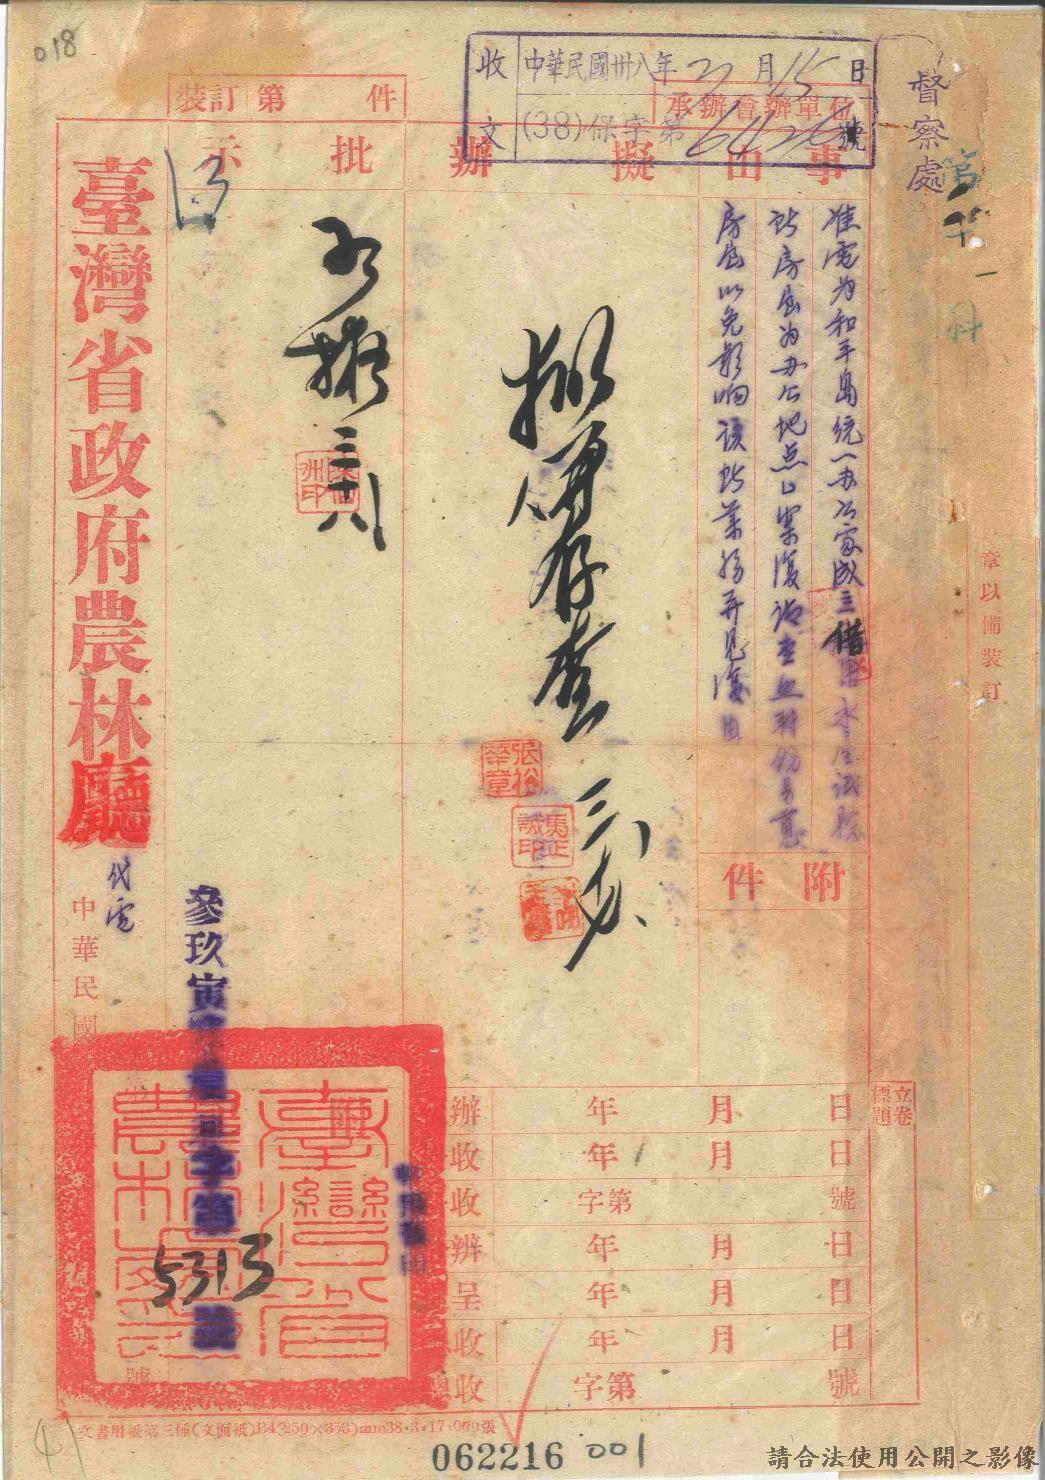 018
收文
中華民國卅八年 月15日
(38)保字第 號
承辦會辦單位
督察處
第 科
章以備裝訂
裝訂 第 件
事由
擬辦
批示
准電為和平島統一办公室成立借用水產試驗
所房屋为办公地点乙案復請查照轉飭另覓
房屋以免影响該所業務并見復由
附件
擬存查
張裕華章
馬正誠印
如擬
三十八
臺灣省政府農林廳
代電
中華民國
參玖寅
字第
5313
號
附
辦 年 月 日
收 年 月 日
收 字第 號
辦 年 月 日
呈 年 月 日
收 年 月 日
收 字第 號
立卷
標題
文書用紙第三種(文面紙)B4(250×353)mm38·3·17·000張
062216 001
請合法使用公開之影像